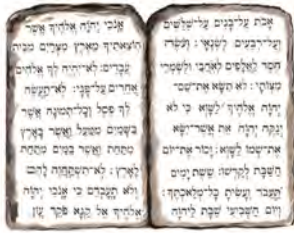 אָנֹכִי יְהוָה אֱלֹהֶיךָ אֲשֶׁר
הוֹצֵאתִיךָ מֵאֶרֶץ מִצְרַיִם מִבֵּית
עֲבָדִים: לֹא־יִהְיֶה לְךָ אֱלֹהִים
אֲחֵרִים עַל־פָּנָי: לֹא־תַעֲשֶׂה
לְךָ פֶסֶל וְכָל־תְּמוּנָה אֲשֶׁר
בַּשָּׁמַיִם מִמַּעַל וַאֲשֶׁר בָּאָרֶץ
מִתָּחַת וַאֲשֶׁר בַּמַּיִם מִתַּחַת
לָאָרֶץ: לֹא־תִשְׁתַּחֲוֶה לָהֶם
וְלֹא תָעָבְדֵם כִּי אָנֹכִי יְהוָה
אֱלֹהֶיךָ אֵל קַנָּא פֹּקֵד עֲוֹן
אָבֹת עַל־בָּנִים עַל־שִׁלֵּשִׁים
וְעַל־רִבֵּעִים לְשֹׂנְאָי: וְעֹשֶׂה
חֶסֶד לַאֲלָפִים לְאֹהֲבַי וּלְשֹׁמְרֵי
מִצְוֹתָי: לֹא תִשָּׂא אֶת־שֵׁם־
יְהוָה אֱלֹהֶיךָ לַשָּׁוְא כִּי לֹא
יְנַקֶּה יְהוָה אֵת אֲשֶׁר־יִשָּׂא
אֶת־שְׁמוֹ לַשָּׁוְא: זָכוֹר אֶת־יוֹם
הַשַּׁבָּת לְקַדְּשׁוֹ: שֵׁשֶׁת יָמִים
תַּעֲבֹד וְעָשִׂיתָ כָּל־מְלַאכְתֶּךָ:
וְיוֹם הַשְּׁבִיעִי שַׁבָּת לַיהוָה